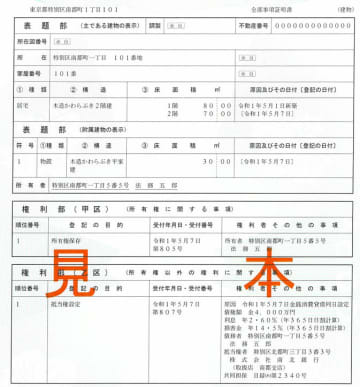 東京都特別区南都町1丁目101　全部事項証明書　(建物)
表題部　(主である建物の表示)　調製　余白　不動産番号　0000000000000
所在図番号　余白
所在　特別区南都町一丁目　101番地　余白
家屋番号　101番　余白
①種類　②構造　③床面積　㎡　原因及びその日付〔登記の日付〕
居宅　木造かわらぶき2階建　1階　80　00　令和1年5月1日新築
2階　70　00　〔令和1年5月7日〕
表題部　(附属建物の表示)
符号　①種類　②構造　③床面積　㎡　原因及びその日付〔登記の日付〕
1　物置　木造かわらぶき平家建　30　00　〔令和1年5月7日〕
所有者　特別区南都町一丁目5番5号　法務五郎
権利部(甲区)　(所有権に関する事項)
順位番号　登記の目的　受付年月日・受付番号　権利者その他の事項
1　所有権保存　令和1年5月7日　所有者　特別区南都町一丁目5番5号
第805号　法務五郎
見本
権利部(乙区)　(所有権以外の権利に関する事項)
順位番号　登記の目的　受付年月日・受付番号　権利者その他の事項
1　抵当権設定　令和1年5月7日　原因　令和1年5月7日金銭消費貸借同日設定
第807号　債権額　金4,000万円
利息　年2・60%(年365日日割計算)
損害金　年14・5%(年365日日割計算)
債務者　特別区南都町一丁目5番5号
法務五郎
抵当権者　特別区北都町三丁目3番3号
株式会社南北銀行
(取扱店　南都支店)
共同担保　目録㈲第2340号